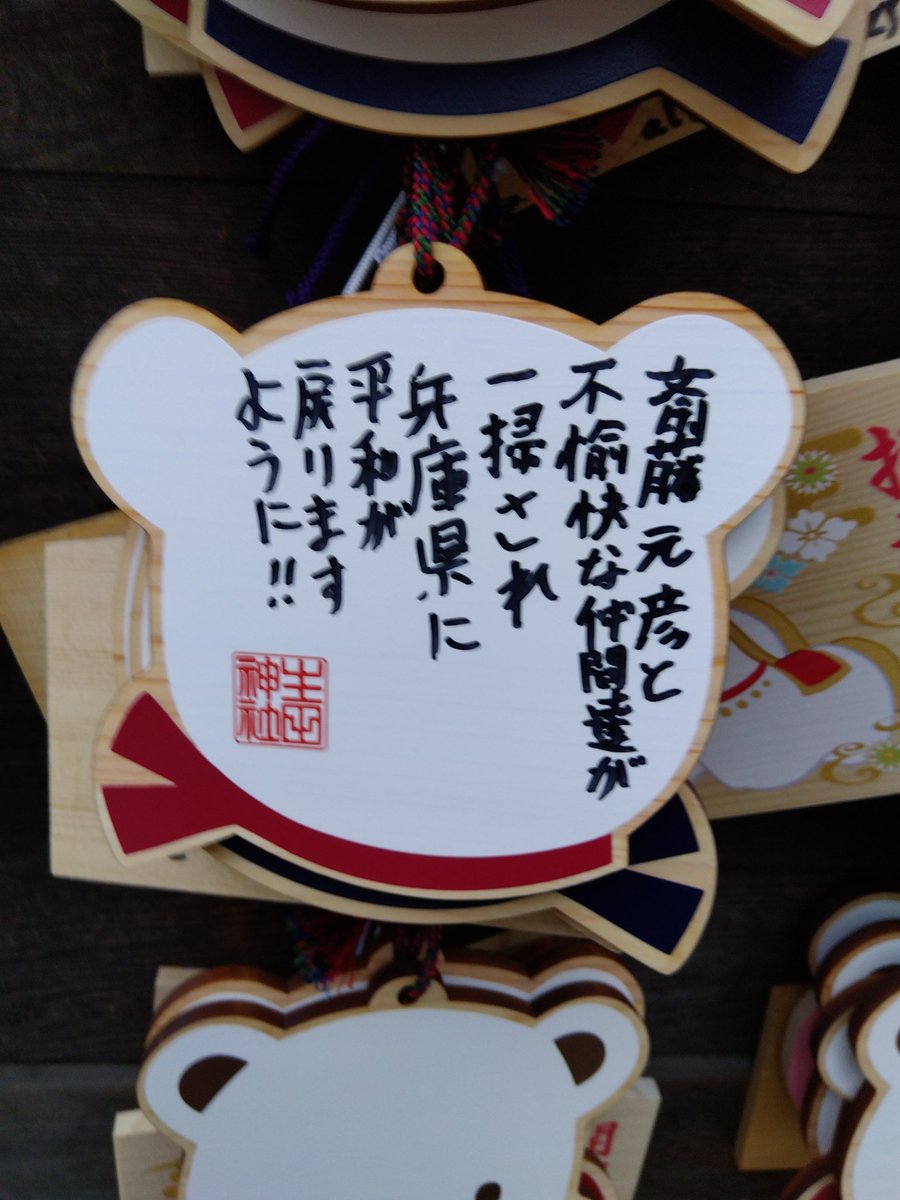 斎藤元彦と
不愉快な仲間達が
一掃され
兵庫県に
平和が
戻ります
ように!!
神社